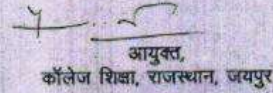 आयुक्त,
कॉलेज शिक्षा, राजस्थान, जयपुर